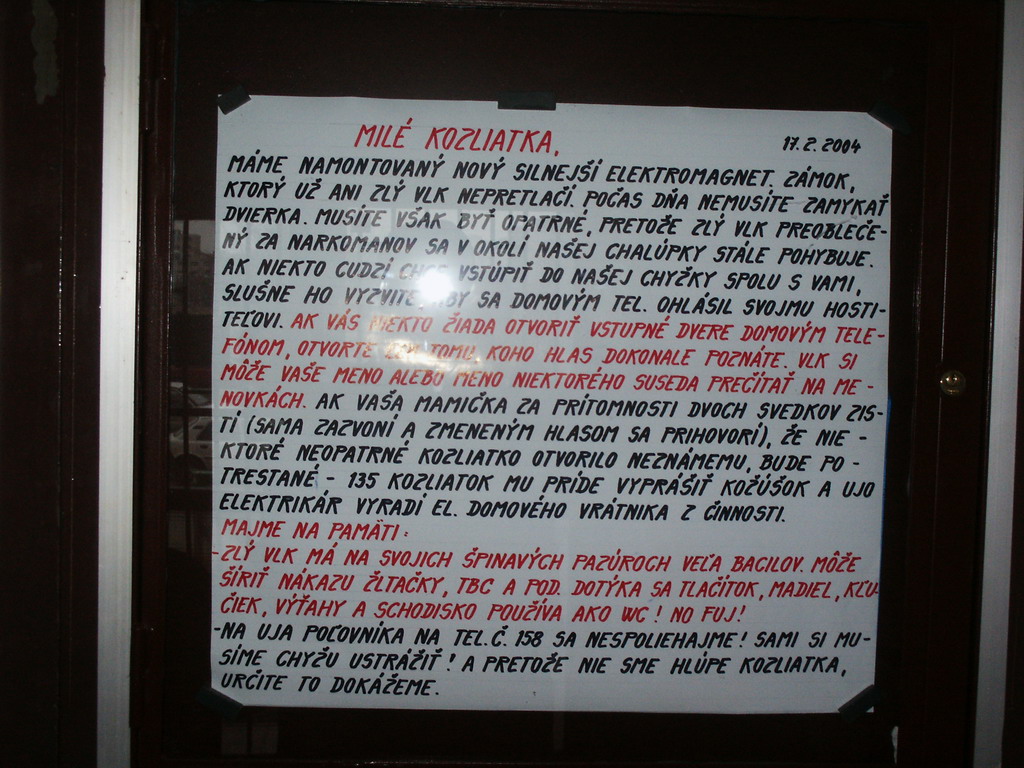 MILÉ KOZLIATKA, 17. 2. 2004
MÁME NAMONTOVANÝ NOVÝ SILNEJŠÍ ELEKTROMAGNET. ZÁMOK,
KTORÝ UŽ ANI ZLÝ VLK NEPRETLAČÍ. POČAS DŇA NEMUSÍTE ZAMYKAŤ
DVIERKA. MUSÍTE VŠAK BYŤ OPATRNÉ, PRETOŽE ZLÝ VLK PREOBLEČE-
NÝ ZA NARKOMANOV SA V OKOLÍ NAŠEJ CHALÚPKY STÁLE POHYBUJE.
AK NIEKTO CUDZÍ CHCE VSTÚPIŤ DO NAŠEJ CHYŽKY SPOLU S VAMI,
SLUŠNE HO VYZVITE, ABY SA DOMOVÝM TEL. OHLÁSIL SVOJMU HOSTI-
TEĽOVI. AK VÁS NIEKTO ŽIADA OTVORIŤ VSTUPNÉ DVERE DOMOVÝM TELE-
FÓNOM, OTVORTE LEN TOMU, KOHO HLAS DOKONALE POZNÁTE. VLK SI
MÔŽE VAŠE MENO ALEBO MENO NIEKTORÉHO SUSEDA PREČÍTAŤ NA ME-
NOVKÁCH. AK VAŠA MAMIČKA ZA PRÍTOMNOSTI DVOCH SVEDKOV ZIS-
TÍ (SAMA ZAZVONÍ A ZMENENÝM HLASOM SA PRIHOVORÍ), ŽE NIE-
KTORÉ NEOPATRNÉ KOZLIATKO OTVORILO NEZNÁMEMU, BUDE PO-
TRESTANÉ - 135 KOZLIATOK MU PRÍDE VYPRÁŠIŤ KOŽÚŠOK A UJO
ELEKTRIKÁR VYRADÍ EL. DOMOVÉHO VRÁTNIKA Z ČINNOSTI.
MAJME NA PAMÄTI:
-ZLÝ VLK MÁ NA SVOJICH ŠPINAVÝCH PAZÚROCH VEĽA BACILOV. MÔŽE
ŠÍRIŤ NÁKAZU ŽLTAČKY, TBC A POD. DOTÝKA SA TLAČÍTOK, MADIEL, KĽU-
ČIEK, VÝŤAHY A SCHODISKO POUŽÍVA AKO WC! NO FUJ!
-NA UJA POĽOVNÍKA NA TEL.Č. 158 SA NESPOLIEHAJME! SAMI SI MU-
SÍME CHYŽU USTRÁŽIŤ! A PRETOŽE NIE SME HLÚPE KOZLIATKA,
URČITE TO DOKÁŽEME.